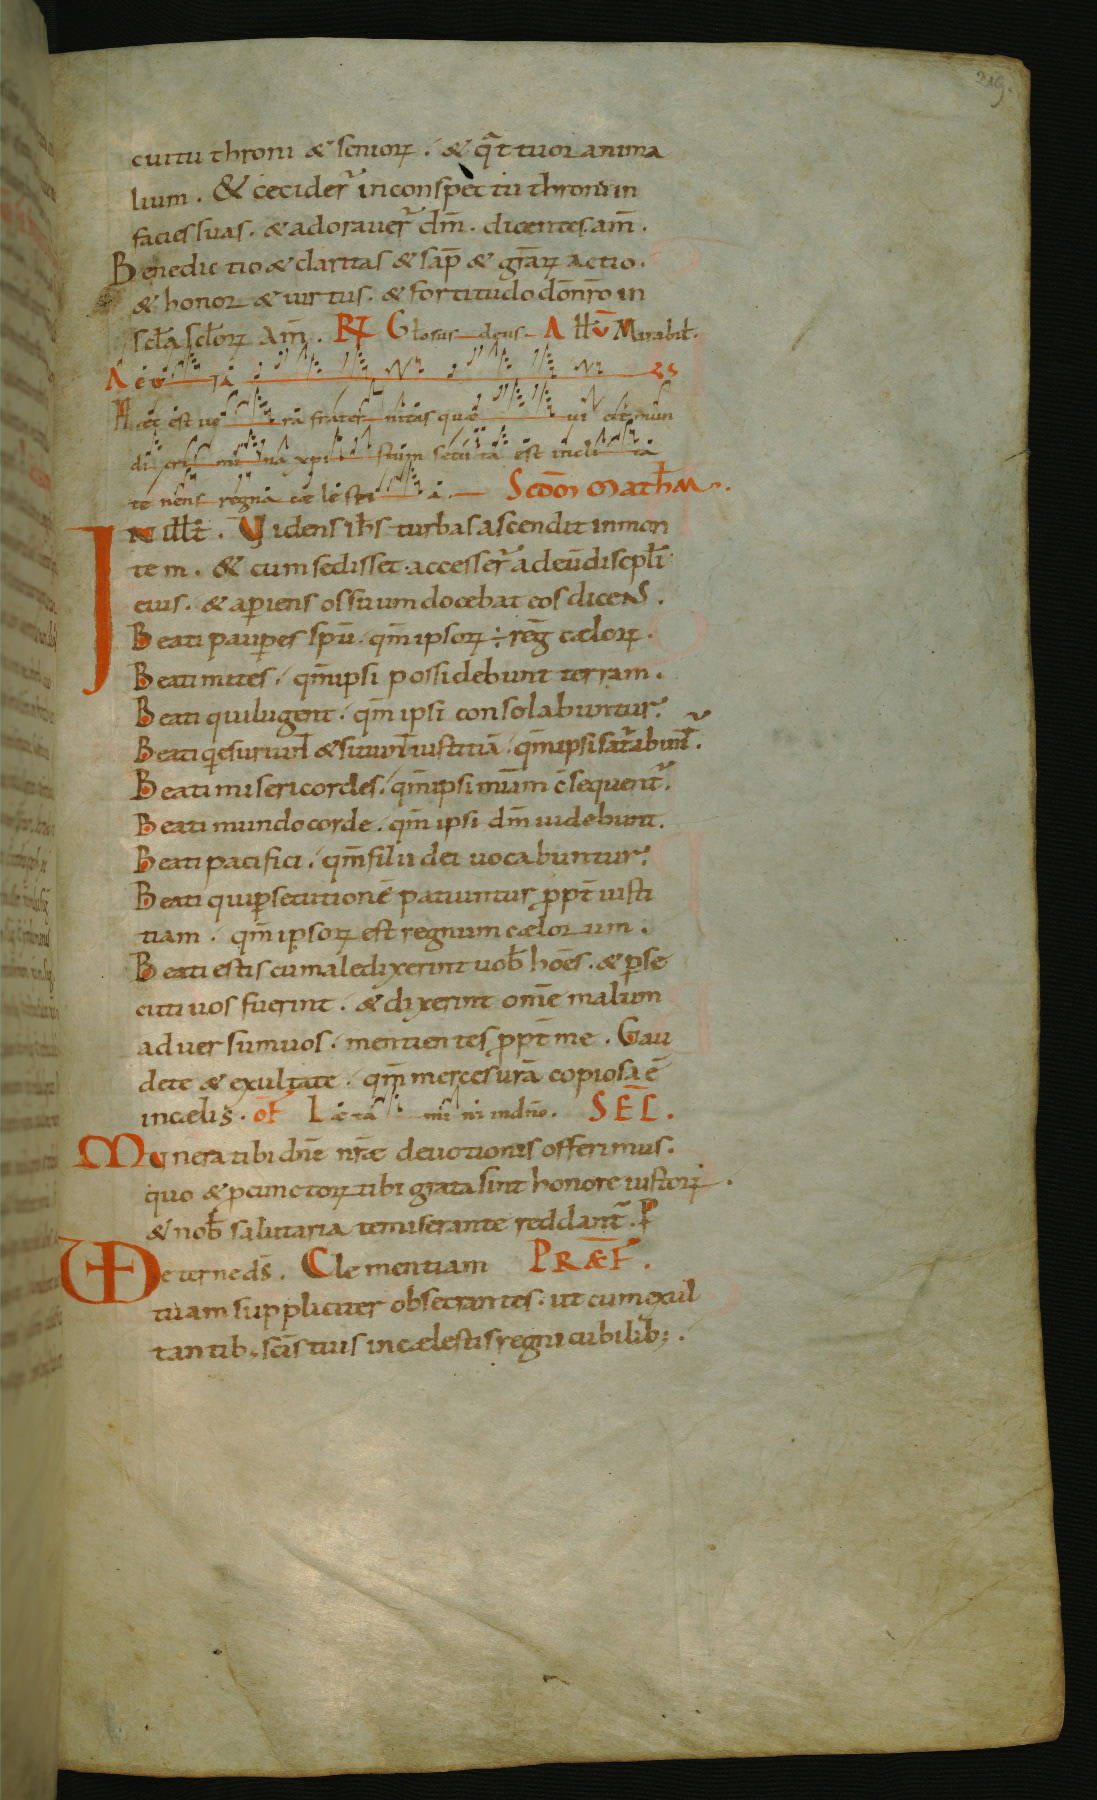 219.
cuitu throni & senior&#42843;. & q̄ttuor anima
lium. & cecider̄ inconspectu throni in
facies suas. & adorauer̄ dm̄. dicentes. am̄.
Benedictio & claritas & sap̄ & gr̄aꝝ actio.
& honor & uirtus. & fortitudo do n̄ro in
scl̄a scl̄orꝝ Am̄. R̷ Gloriosus deus A ll̄ v̄ Mirabil̄.
A e v ia
Haec est uera fraternitas quae uicit mun
di crimina xpistum secuta est inclita
tenens regna caelestia. Scdm̄ Math̄m.
IN ill̄ t̄. Videns ih̄s turbas ascendit inmon
tem. & cum sedisset. accesser̄ adeū discpl̄i
eius. & aperiens os suum docebat eos dicens.
Beati pauperes spū. qm̄ ipsorꝝ ÷ reḡ caelorꝝ.
Beati mites. qm̄ ipsi possidebunt terram.
Beati qui lugent. qm̄ ipsi consolabuntur.
Beati q̄ esuriunt & sitiunt iustitiā. qm̄ ipsi sat̄abunt̄.
Beati misericordes. qm̄ ipsi miām c̄sequent̄.
Beati mundo corde. qm̄ ipsi dm̄ uidebunt.
Beati pacifici. qm̄ filii dei uocabuntur.
Beati qui ꝑsecutionē patiuntur ꝓpt̄ iusti
tiam. qm̄ ipsorꝝ est regnum caelorum.
Beati estis cum aledixerint uob̄ hoēs. & ꝑse
cuti uos fuerint. & dixerint om̄e malum
aduersum uos. mentientes ꝓpt̄ me. Gau
dete & exultate. qm̄ merces ur̄a copiosa ē
in caelis. of̄ Laetamini in dn̄o. SEC̄.
Munera tibi dn̄e nr̄ae deuotionis offerimus.
quo & ꝑ cunctorꝝ tibi grata sint honore iustorꝝ.
& nob̄ salutaria te miserante reddant̄. P
VD eterne ds̄. Clementiam PRAEF̄.
tuam suppliciter obsecrantes. ut cum exul
tantib; scīs tuis in caelestis regni cubilib;.